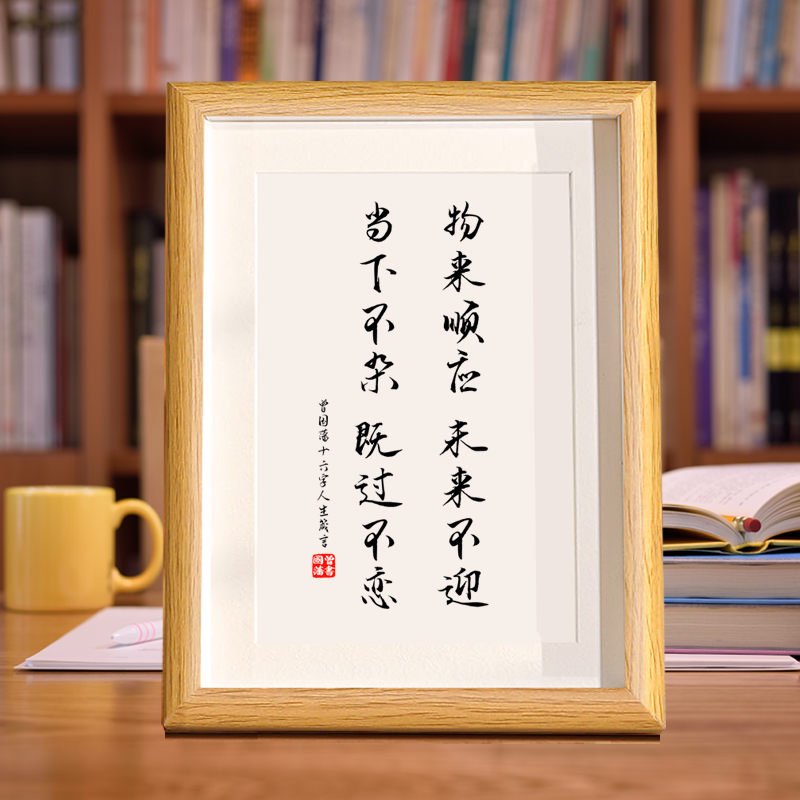 物来顺应 未来不迎
当下不杂 既过不恋
曾国藩十六字人生箴言
曾国藩书